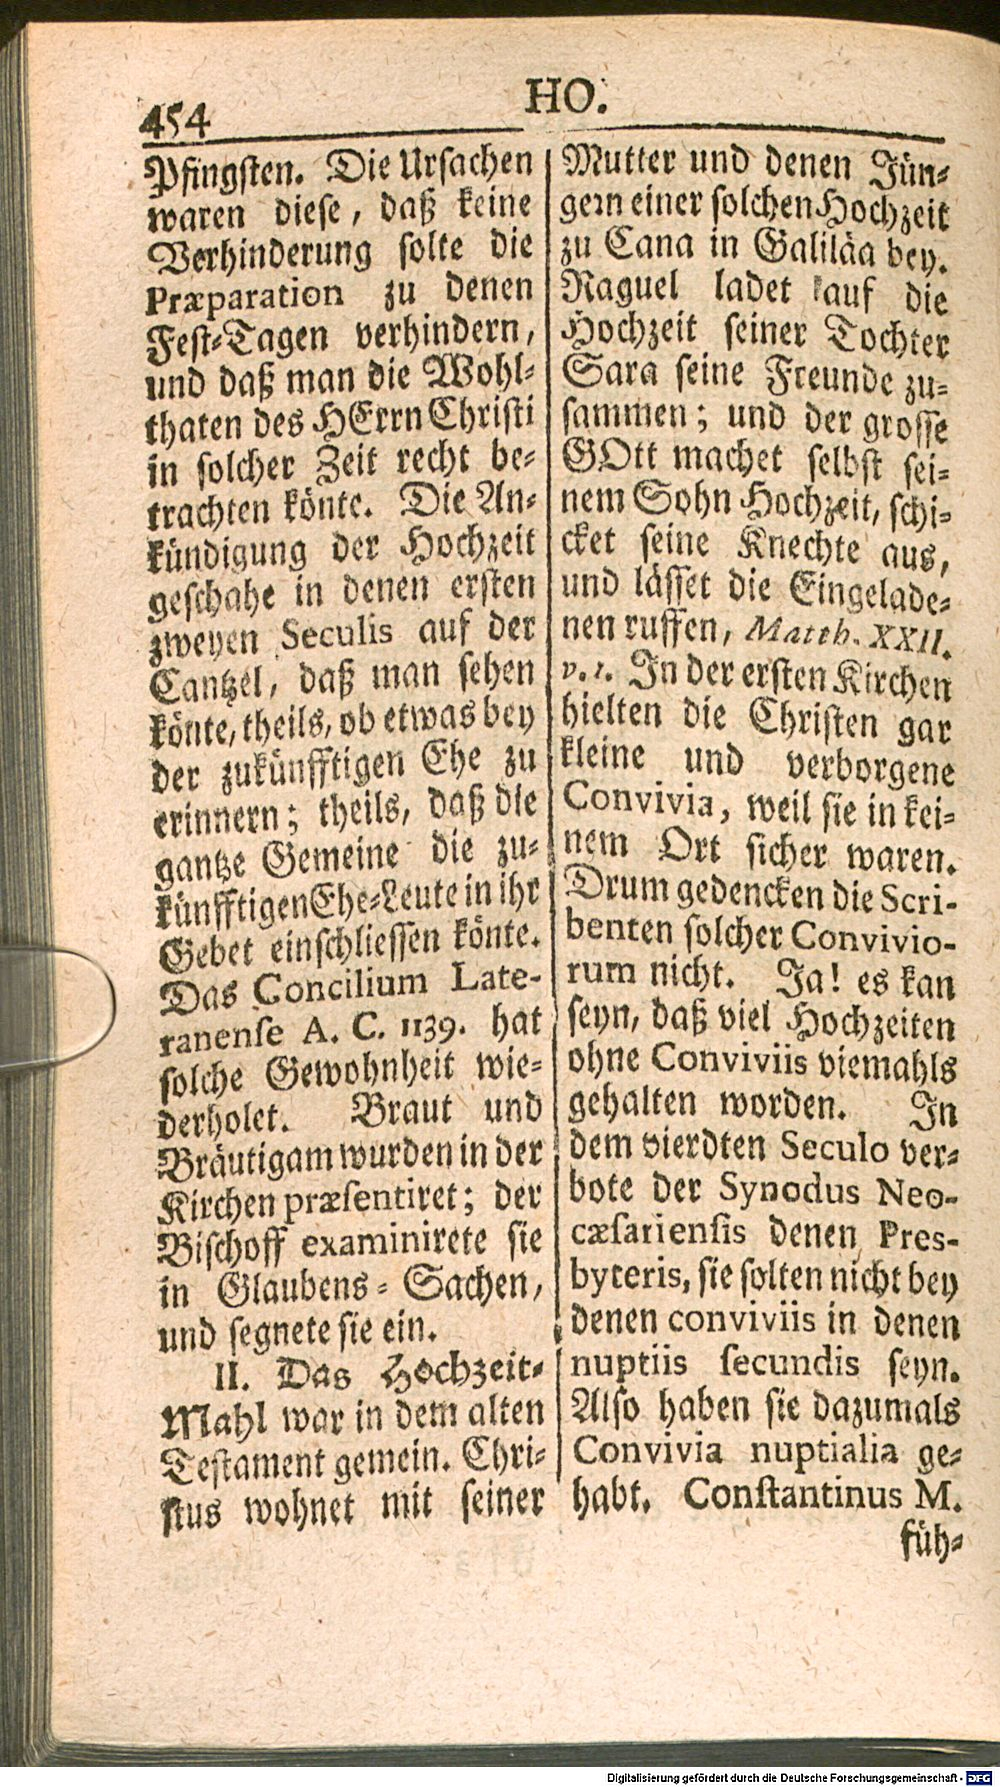 454
HO.
Pfingsten. Die Ursachen
waren diese, daß keine
Verhinderung solte die
Præparation zu denen
Fest-Tagen verhindern,
und daß man die Wohl-
thaten des HErrn Christi
in solcher Zeit recht be-
trachten könte. Die An-
kündigung der Hochzeit
geschahe in denen ersten
zweyen Seculis auf der
Cantzel, daß man sehen
könte, theils, ob etwas bey
der zukünfftigen Ehe zu
erinnern; theils, daß die
gantze Gemeine die zu-
künfftigen Ehe-Leute in ihr
Gebet einschliessen könte.
Das Concilium Late-
ranense A. C. 1139. hat
solche Gewohnheit wie-
derholet. Braut und
Bräutigam wurden in der
Kirchen præsentiret; der
Bischoff examinirete sie
in Glaubens-Sachen,
und segnete sie ein.
II. Das Hochzeit-
Mahl war in dem alten
Testament gemein. Chri-
stus wohnet mit seiner
Mutter und denen Jün-
gern einer solchen Hochzeit
zu Cana in Galiläa bey.
Raguel ladet auf die
Hochzeit seiner Tochter
Sara seine Freunde zu-
sammen; und der grosse
GOtt machet selbst sei-
nem Sohn Hochzeit, schi-
cket seine Knechte aus,
und lässet die Eingelade-
nen ruffen, Matth. XXII.
v. 1. In der ersten Kirchen
hielten die Christen gar
kleine und verborgene
Convivia, weil sie in kei-
nem Ort sicher waren.
Drum gedencken die Scri-
benten solcher Convivio-
rum nicht. Ja! es kan
seyn, daß viel Hochzeiten
ohne Conviviis viemahls
gehalten worden. In
dem vierdten Seculo ver-
bote der Synodus Neo-
cæsariensis denen Pres-
byteris, sie solten nicht bey
denen conviviis in denen
nuptiis secundis seyn.
Also haben sie dazumals
Convivia nuptialia ge-
habt. Constantinus M.
füh-
Digitalisierung gefördert durch die Deutsche Forschungsgemeinschaft - DFG